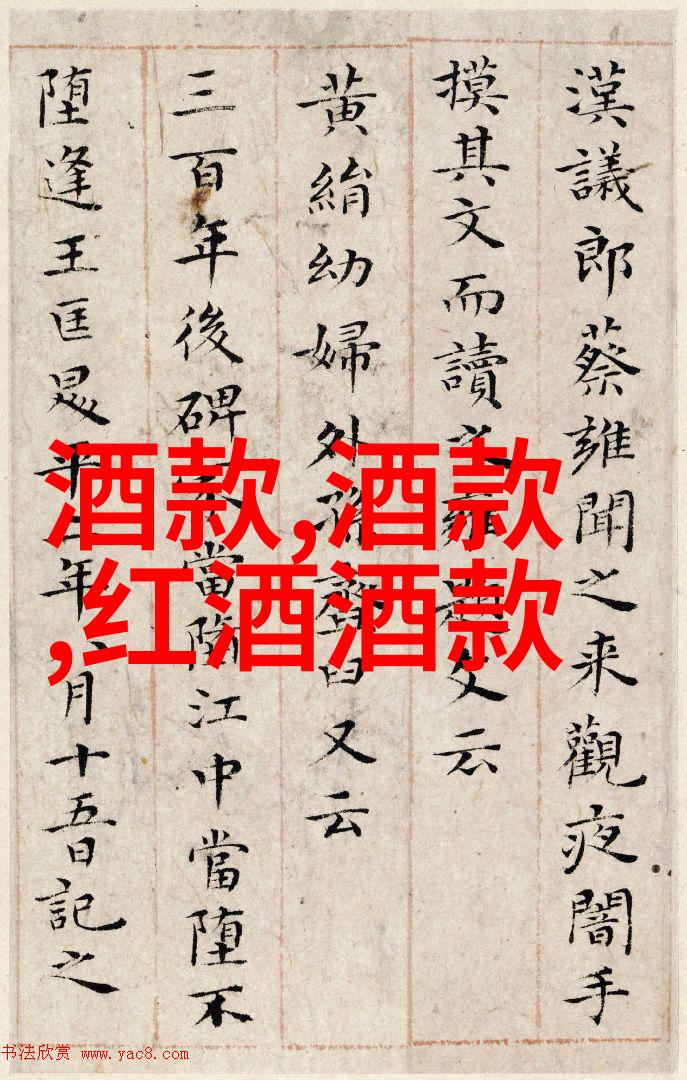 漢議郎蔡雍聞之来觀夜闇手
摸其文而讀之雍題文云
黄絹幼婦外孫齏臼又云
三百年後碑當墮江中當墮不
墮逢王匡昇平二年八月十五日記之
酒款,酒款
,红酒酒款
书法欣赏 www.yac8.com